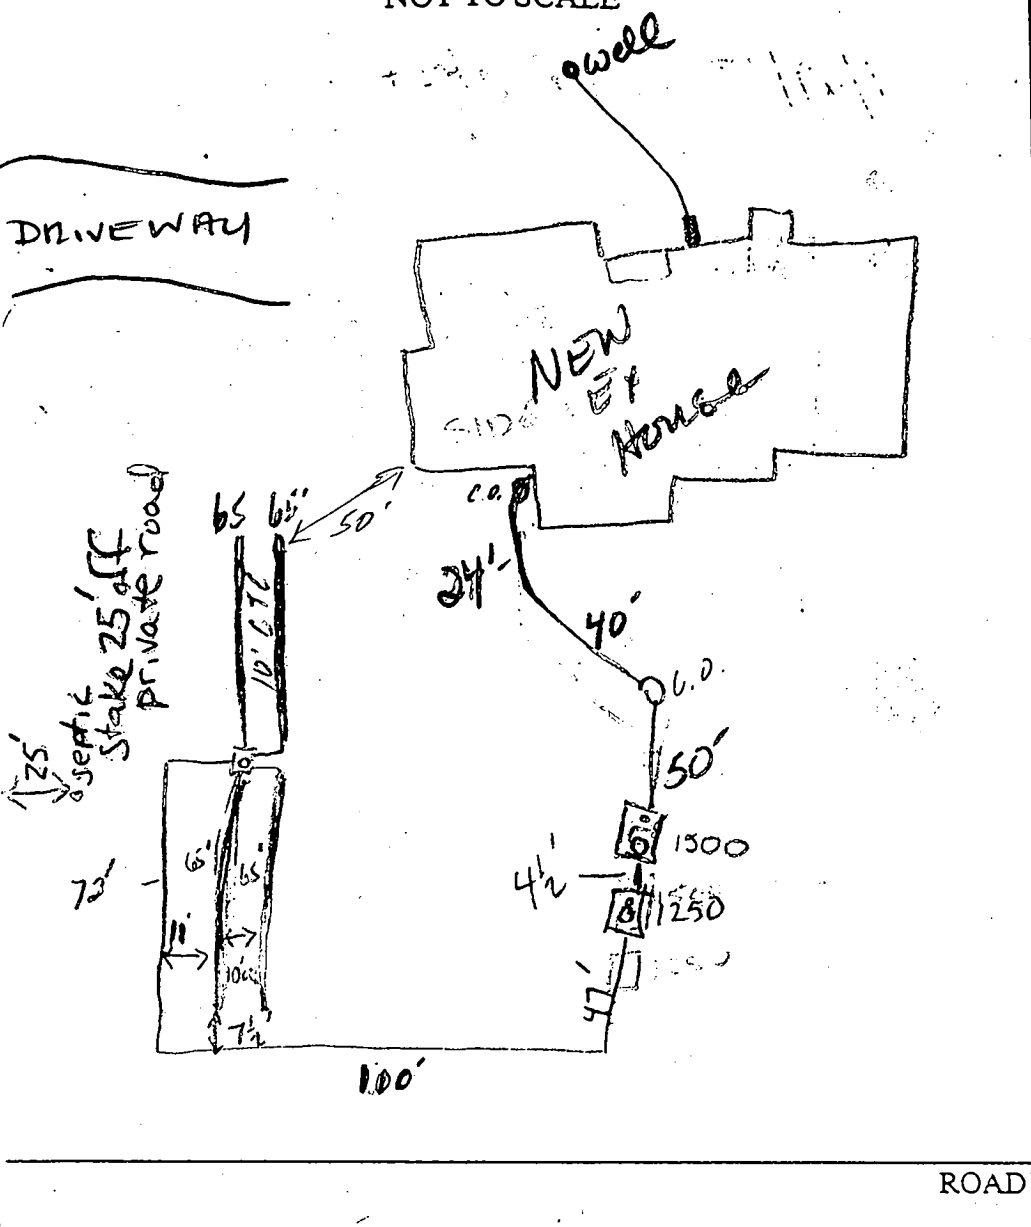 NOT TO SCALE
well
DRIVEWAY
NEW
House
C.O.
50'
65 65'
24'
40'
C.O.
10' CTC
septic
stake 25' off
private road
25'
50'
1500
4½'
1250
65'
65'
72'
11'
7½'
47'
100'
ROAD